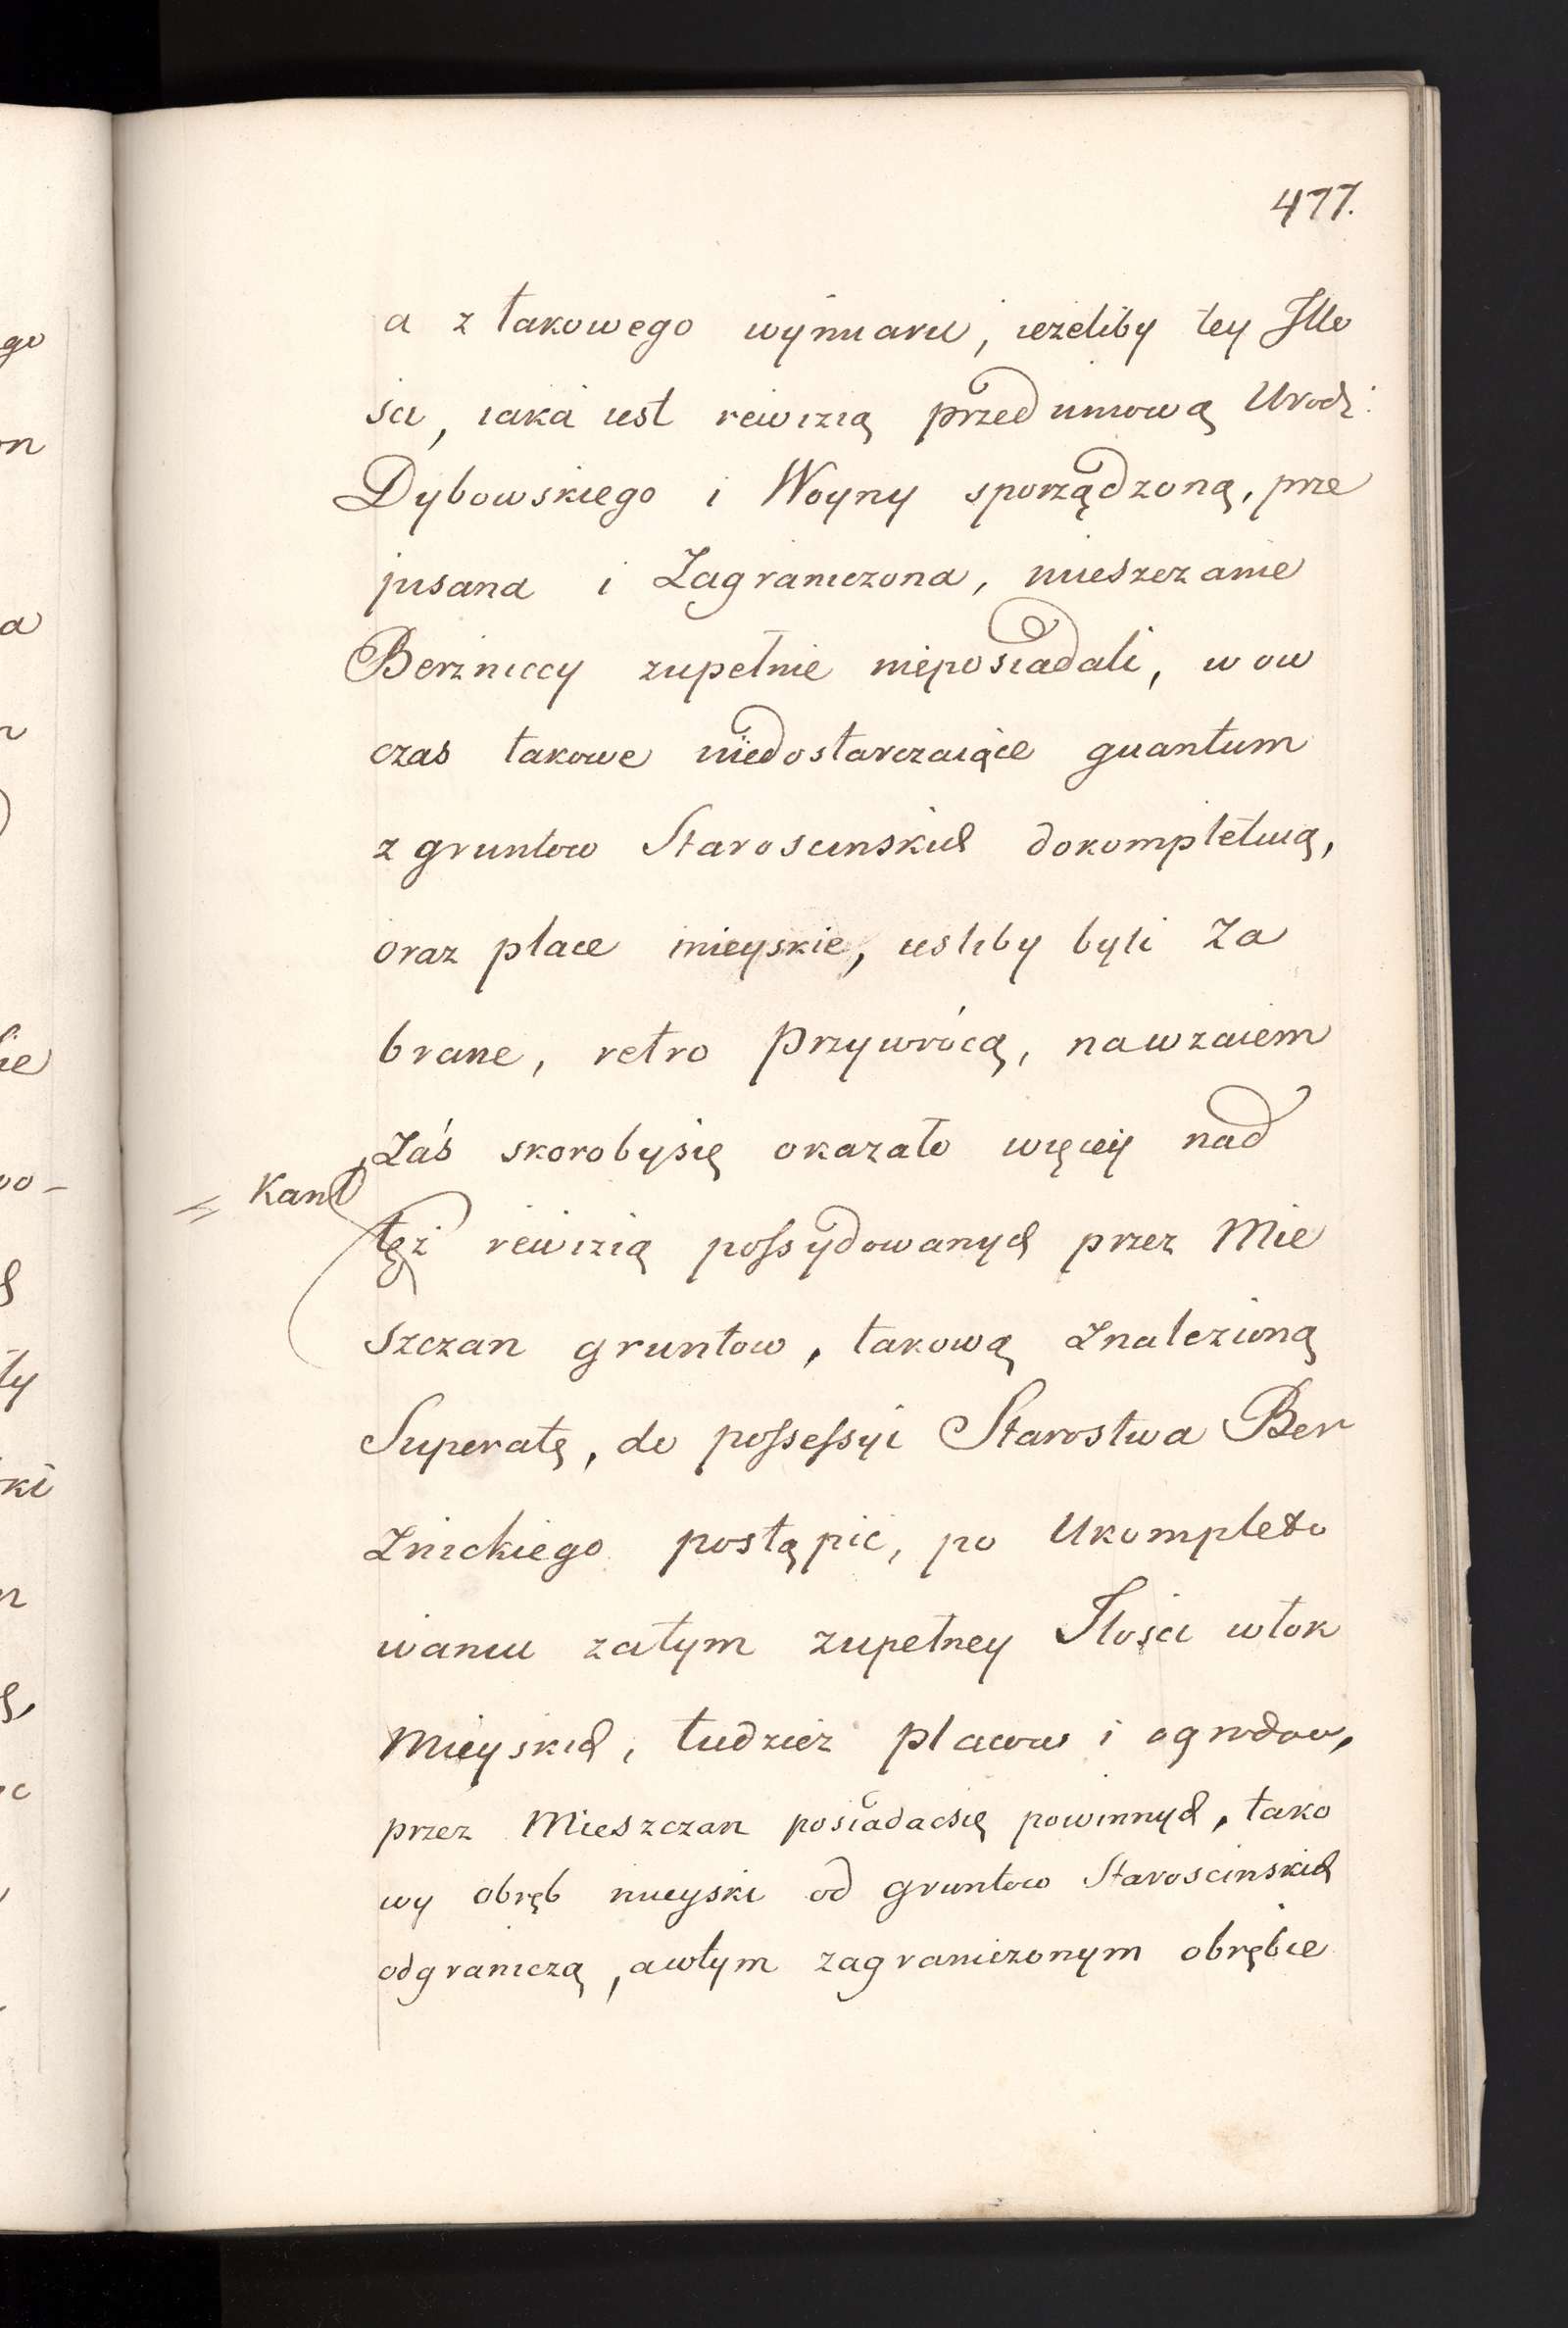 477.
a z takowego wymiaru, ieżeliby tey Illo
ści, iaka iest rewizią przed umową Urodz:
Dybowskiego i Woyny sporządzoną, prze
pisana i Zagraniczona, mieszczanie
Berzniccy zupełnie nieposiadali, w ow
czas takowe niedostarczaiące quantum
z gruntow Staroscinskich dokompletuią,
oraz place mieyskie, iesliby byli Za
brane, retro przywrócą, nawzaiem
Zaś skorobysię okazało więcey nad
tęż rewizią possydowanych przez Mie
szczan gruntow, takową Znalezioną
Superatę, do possessyi Starostwa Ber
Znickiego postąpić, po Ukompleto
waniu zatym zupełney Ilości włok
Mieyskich, tudzież placow i ogrodow,
przez Mieszczan posiadacsię powinnych, tako
wy obręb mieyski od gruntow Staroscinskich
odgraniczą, awtym zagraniczonym obrębie